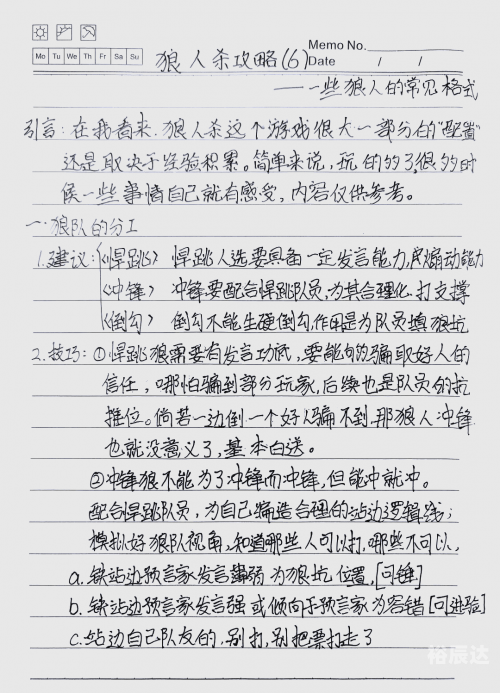 Memo No.
Mo Tu We Th Fr Sa Su
狼人杀攻略(6)
Date / /
——一些狼人的常见格式
引言:在我看来,狼人杀这个游戏很大一部分的"配置"
还是取决于经验积累。简单来说,玩的多了,很多时
候一些事情自己就有感受,内容仅供参考。
一.狼队的分工
1.建议:〈悍跳〉 悍跳人选要具备一定发言能力,煽动能力
〈冲锋〉 冲锋要配合悍跳队员,为其合理化.打支撑
〈倒勾〉 倒勾不能生硬倒勾,作用是为队员填狼坑
2.技巧:①悍跳狼需要有发言功底,要能够骗取好人的
信任,哪怕骗到部分玩家,后续也是队员的抗
推位。倘若一边倒一个好人骗不到,那狼人冲锋
也就没意义了,基本白送。
②冲锋狼不能为了冲锋而冲锋,但能冲就冲。
配合悍跳队员,为自己编造合理的站边逻辑线;
模拟好狼队视角,知道哪些人可以打,哪些不可以,
a.铁站边预言家发言弱为狼坑位置,[可锤]
b.铁站边预言家发言强或倾向于预言家为容错[可进验]
c.站边自己队友的,别打,别把票打走了
裕辰达